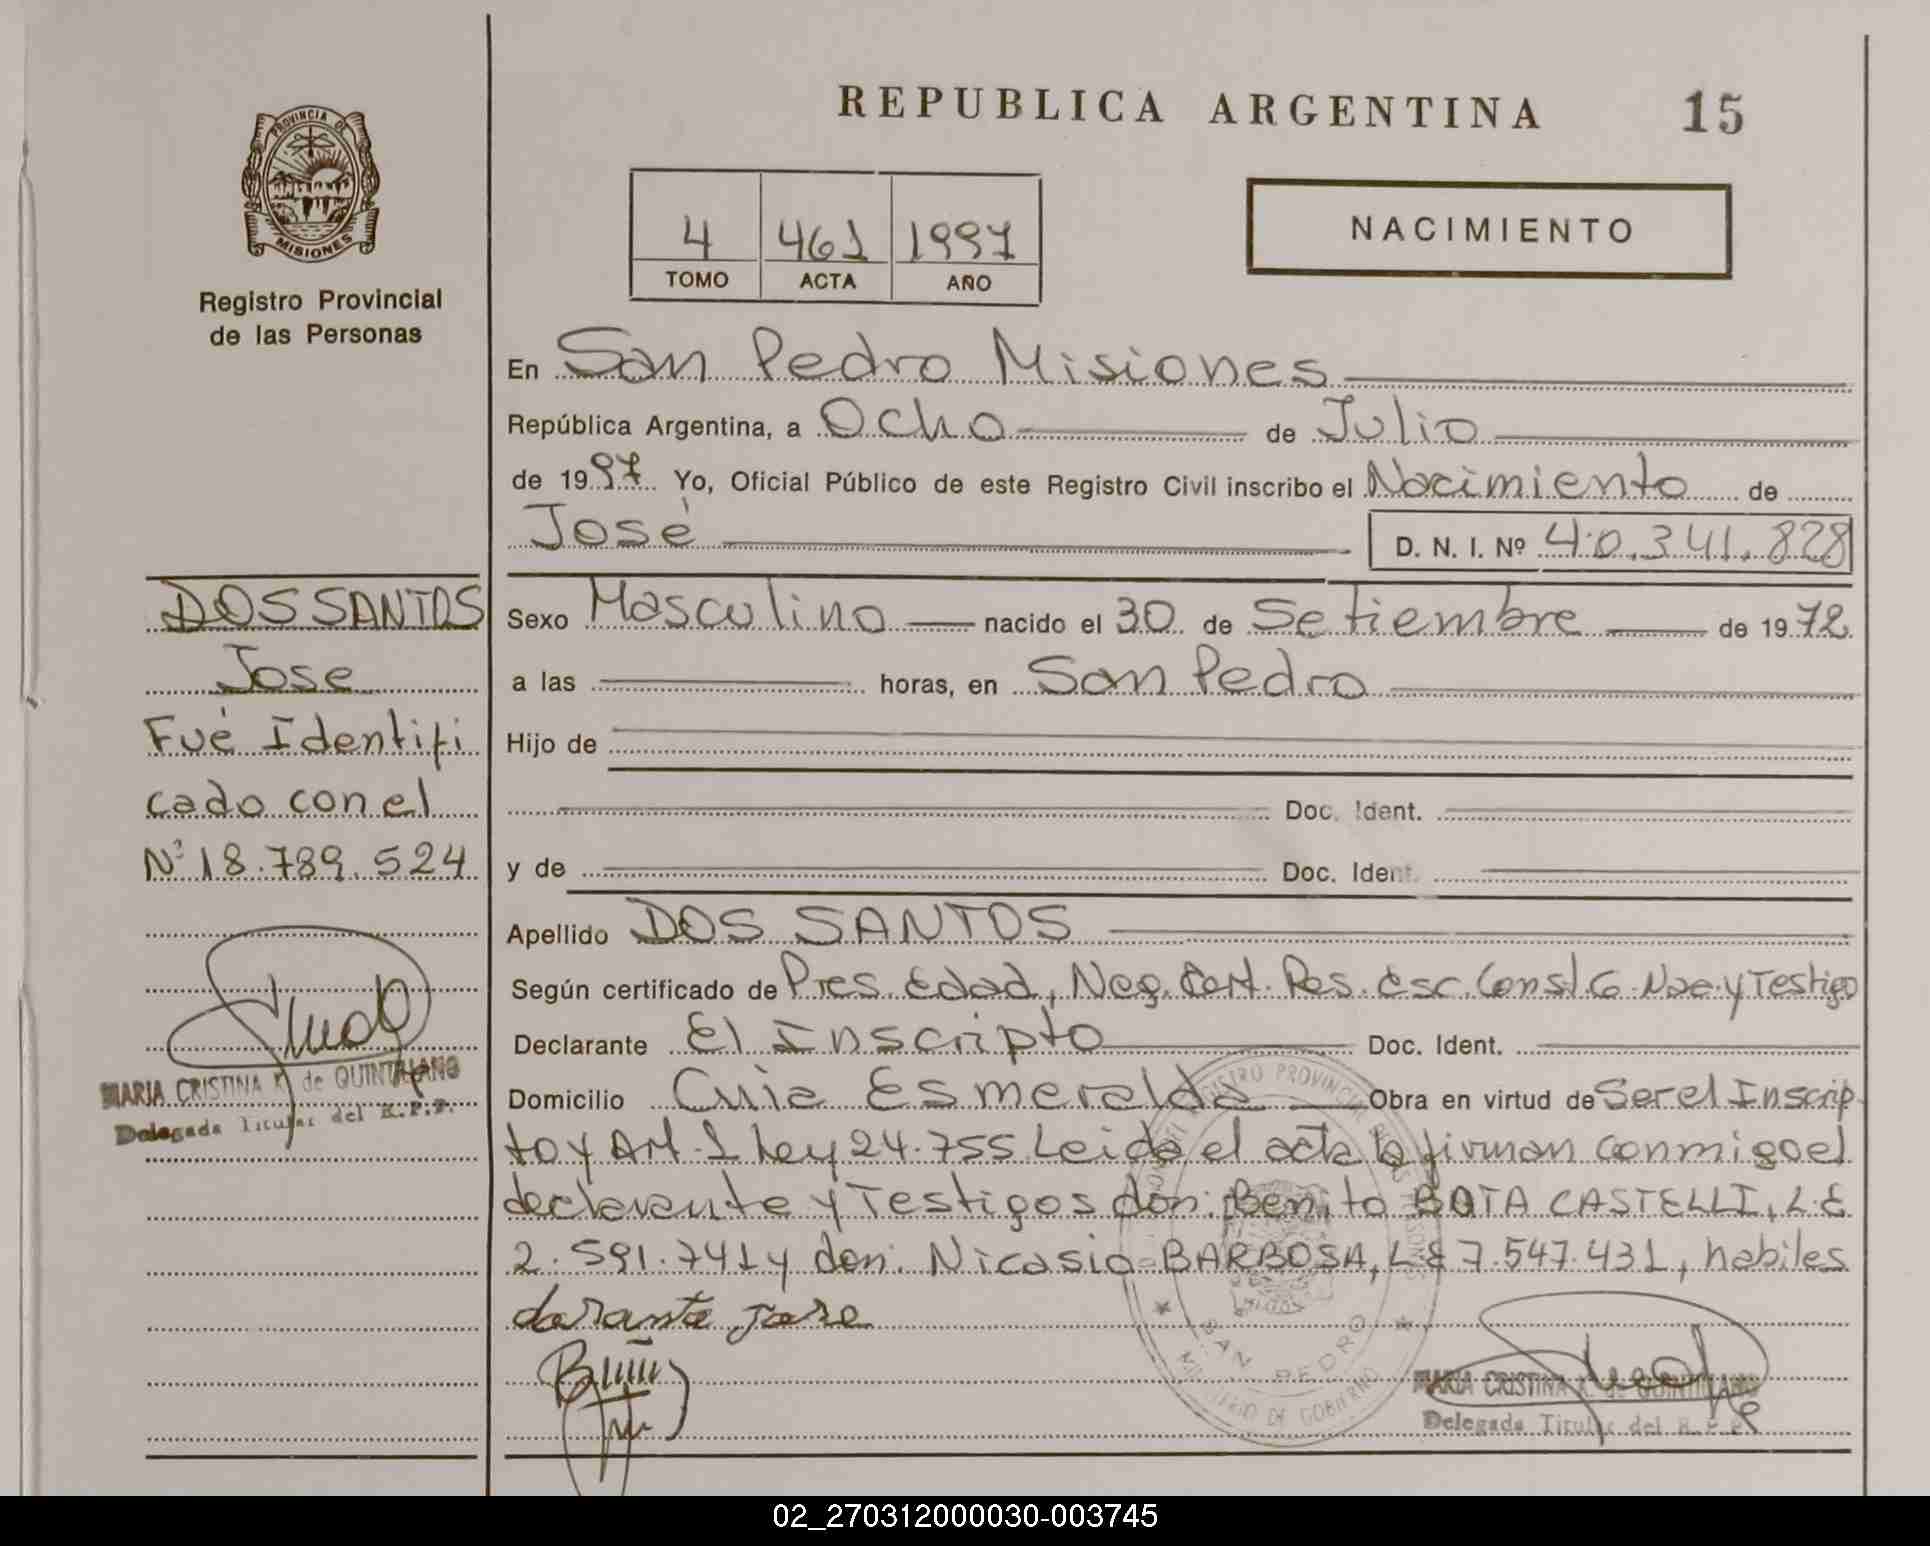 REPUBLICA ARGENTINA 15
PROVINCIA DE
MISIONES
Registro Provincial
de las Personas
4 461 1997
TOMO ACTA AÑO
NACIMIENTO
En San Pedro Misiones
República Argentina, a Ocho de Julio
de 1997 Yo, Oficial Público de este Registro Civil inscribo el Nacimiento de
José D. N. I. Nº 40.341.828
Sexo Masculino nacido el 30 de Setiembre de 1972
a las horas, en San Pedro
Hijo de
Doc. Ident.
y de Doc. Ident.
Apellido DOS SANTOS
Según certificado de Pres. Edad, Neg. Cert. Pes. Esc. Const G. Nac. y Testigo
Declarante El Inscripto Doc. Ident.
Domicilio Cuia Esmeralda Obra en virtud de Ser el Inscrip
to y Art. 1 Ley 24.755 Leida el acta la firman conmigo el
declarante y Testigos don: Benito BOTA CASTELLI, L.E
2.591.741 y don: Nicasio BARBOSA, L E 7.547.431, habiles
dosante jose
DOS SANTOS
Jose
Fué Identifi
cado con el
Nº 18.789.524
MARIA CRISTINA K. de QUINTILIANO
Delegada Titular del R.P.P.
SAN PEDRO
MINISTERIO DE GOBIERNO
MARIA CRISTINA K. de QUINTILIANO
Delegada Titular del R.P.P.
02_270312000030-003745